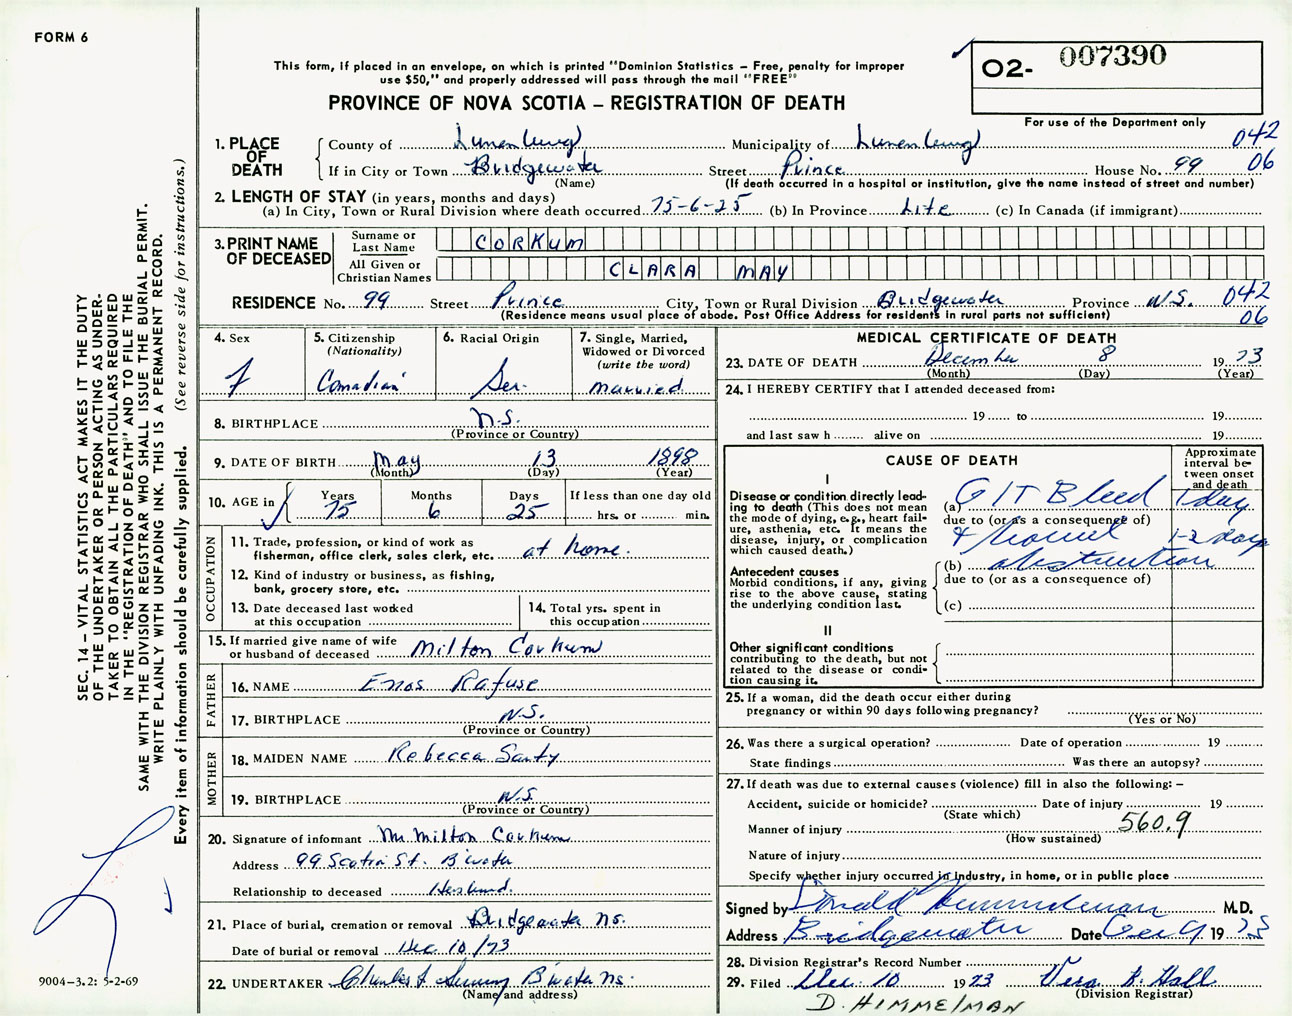 FORM 6
This form, if placed in an envelope, on which is printed "Dominion Statistics – Free, penalty for improper
use $50," and properly addressed will pass through the mail "FREE"
PROVINCE OF NOVA SCOTIA – REGISTRATION OF DEATH
O2- 007390
For use of the Department only
1. PLACE OF DEATH
County of Lunenburg Municipality of Lunenburg 042
If in City or Town Bridgewater Street Prince House No. 99 06
(Name) (If death occurred in a hospital or institution, give the name instead of street and number)
2. LENGTH OF STAY (in years, months and days)
(a) In City, Town or Rural Division where death occurred 75-6-25 (b) In Province Life (c) In Canada (if immigrant)
3. PRINT NAME OF DECEASED
Surname or Last Name CORKUM
All Given or Christian Names CLARA MAY
RESIDENCE No. 99 Street Prince City, Town or Rural Division Bridgewater Province N.S. 042
(Residence means usual place of abode. Post Office Address for residents in rural parts not sufficient) 06
4. Sex F
5. Citizenship (Nationality) Canadian
6. Racial Origin Ger.
7. Single, Married, Widowed or Divorced (write the word) married
8. BIRTHPLACE N.S.
(Province or Country)
9. DATE OF BIRTH May 13 1898
(Month) (Day) (Year)
10. AGE in Years 75 Months 6 Days 25 If less than one day old
hrs. or min.
OCCUPATION
11. Trade, profession, or kind of work as
fisherman, office clerk, sales clerk, etc. at home.
12. Kind of industry or business, as fishing,
bank, grocery store, etc.
13. Date deceased last worked
at this occupation
14. Total yrs. spent in
this occupation
15. If married give name of wife
or husband of deceased Milton Corkum
FATHER
16. NAME Enos Rafuse
17. BIRTHPLACE N.S.
(Province or Country)
MOTHER
18. MAIDEN NAME Rebecca Sarty
19. BIRTHPLACE N.S.
(Province or Country)
20. Signature of informant Mr Milton Corkum
Address 99 Scotia St. B'water
Relationship to deceased Husband.
21. Place of burial, cremation or removal Bridgewater NS.
Date of burial or removal Dec. 10/73
22. UNDERTAKER B'water NS.
(Name and address)
MEDICAL CERTIFICATE OF DEATH
23. DATE OF DEATH December 8 1973
(Month) (Day) (Year)
24. I HEREBY CERTIFY that I attended deceased from:
19 to 19
and last saw h alive on 19
CAUSE OF DEATH
Approximate interval between onset and death
I
Disease or condition directly lead-
ing to death (This does not mean
the mode of dying, e.g., heart fail-
ure, asthenia, etc. It means the
disease, injury, or complication
which caused death.)
(a) GIT Bleed 1 day
due to (or as a consequence of)
& bowel 1-2 days
(b) obstruction
due to (or as a consequence of)
(c)
Antecedent causes
Morbid conditions, if any, giving
rise to the above cause, stating
the underlying condition last.
II
Other significant conditions
contributing to the death, but not
related to the disease or condi-
tion causing it.
25. If a woman, did the death occur either during
pregnancy or within 90 days following pregnancy?
(Yes or No)
26. Was there a surgical operation? Date of operation 19
State findings Was there an autopsy?
27. If death was due to external causes (violence) fill in also the following: –
Accident, suicide or homicide? Date of injury 19
(State which)
Manner of injury 560.9
(How sustained)
Nature of injury
Specify whether injury occurred in industry, in home, or in public place
Signed by Donald Himmelman M.D.
Address Bridgewater Date Dec 9 1973
28. Division Registrar's Record Number
29. Filed Dec. 10 1973 Vera B. Hall
(Division Registrar)
D. HIMMELMAN
SEC. 14 – VITAL STATISTICS ACT MAKES IT THE DUTY
OF THE UNDERTAKER OR PERSON ACTING AS UNDER-
TAKER TO OBTAIN ALL THE PARTICULARS REQUIRED
IN THE "REGISTRATION OF DEATH" AND TO FILE THE
SAME WITH THE DIVISION REGISTRAR WHO SHALL ISSUE THE BURIAL PERMIT.
WRITE PLAINLY WITH UNFADING INK. THIS IS A PERMANENT RECORD.
Every item of information should be carefully supplied. (See reverse side for instructions.)
9004-3.2: 5-2-69